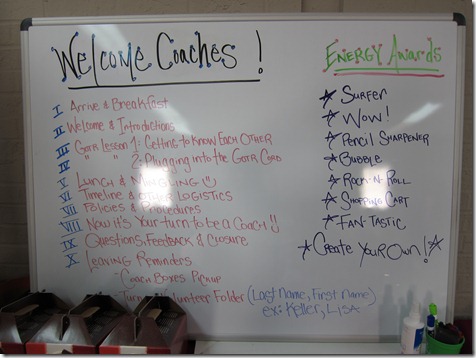 Welcome Coaches!
I Arrive & Breakfast
II Welcome & Introductions
III GOTR Lesson 1: Getting to Know Each Other
IV " " 2: Plugging into the GOTR Cord
V Lunch & Mingling
VI Timeline & Other Logistics
VII Policies & Procedures
VIII Now it's your turn to be a Coach!!
IX Questions, Feedback & Closure
X Leaving Reminders
-Coach Boxes Pickup
-Turn Volunteer Folder (Last Name, First Name)
ex: Keller, Lisa
Energy Awards
Surfer
Wow!
Pencil Sharpener
Bubble
Rock-N-Roll
Shopping Cart
Fan-Tastic
Create Your Own!